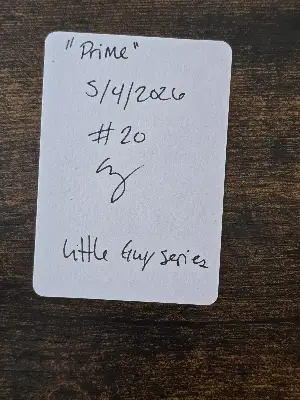 "Prime"
5/4/2026
#20
Little Guy series